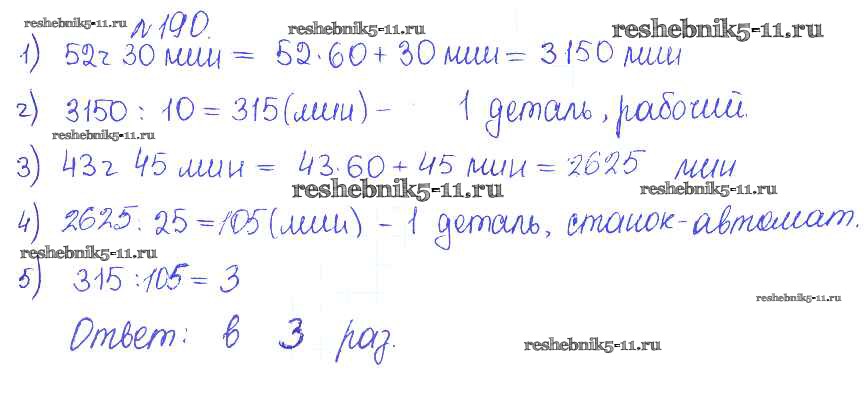 reshebnik5-11.ru
№190.
reshebnik5-11.ru
reshebnik5-11.ru
1) 52ч 30 мин = 52·60 + 30 мин = 3150 мин
2) 3150 : 10 = 315 (мин) - 1 деталь, рабочий.
reshebnik5-11.ru
3) 43ч 45 мин = 43·60 + 45 мин = 2625 мин
reshebnik5-11.ru
reshebnik5-11.ru
4) 2625 : 25 = 105 (мин) - 1 деталь, станок-автомат.
reshebnik5-11.ru
5) 315 : 105 = 3
reshebnik5-11.ru
Ответ: в 3 раз.
reshebnik5-11.ru